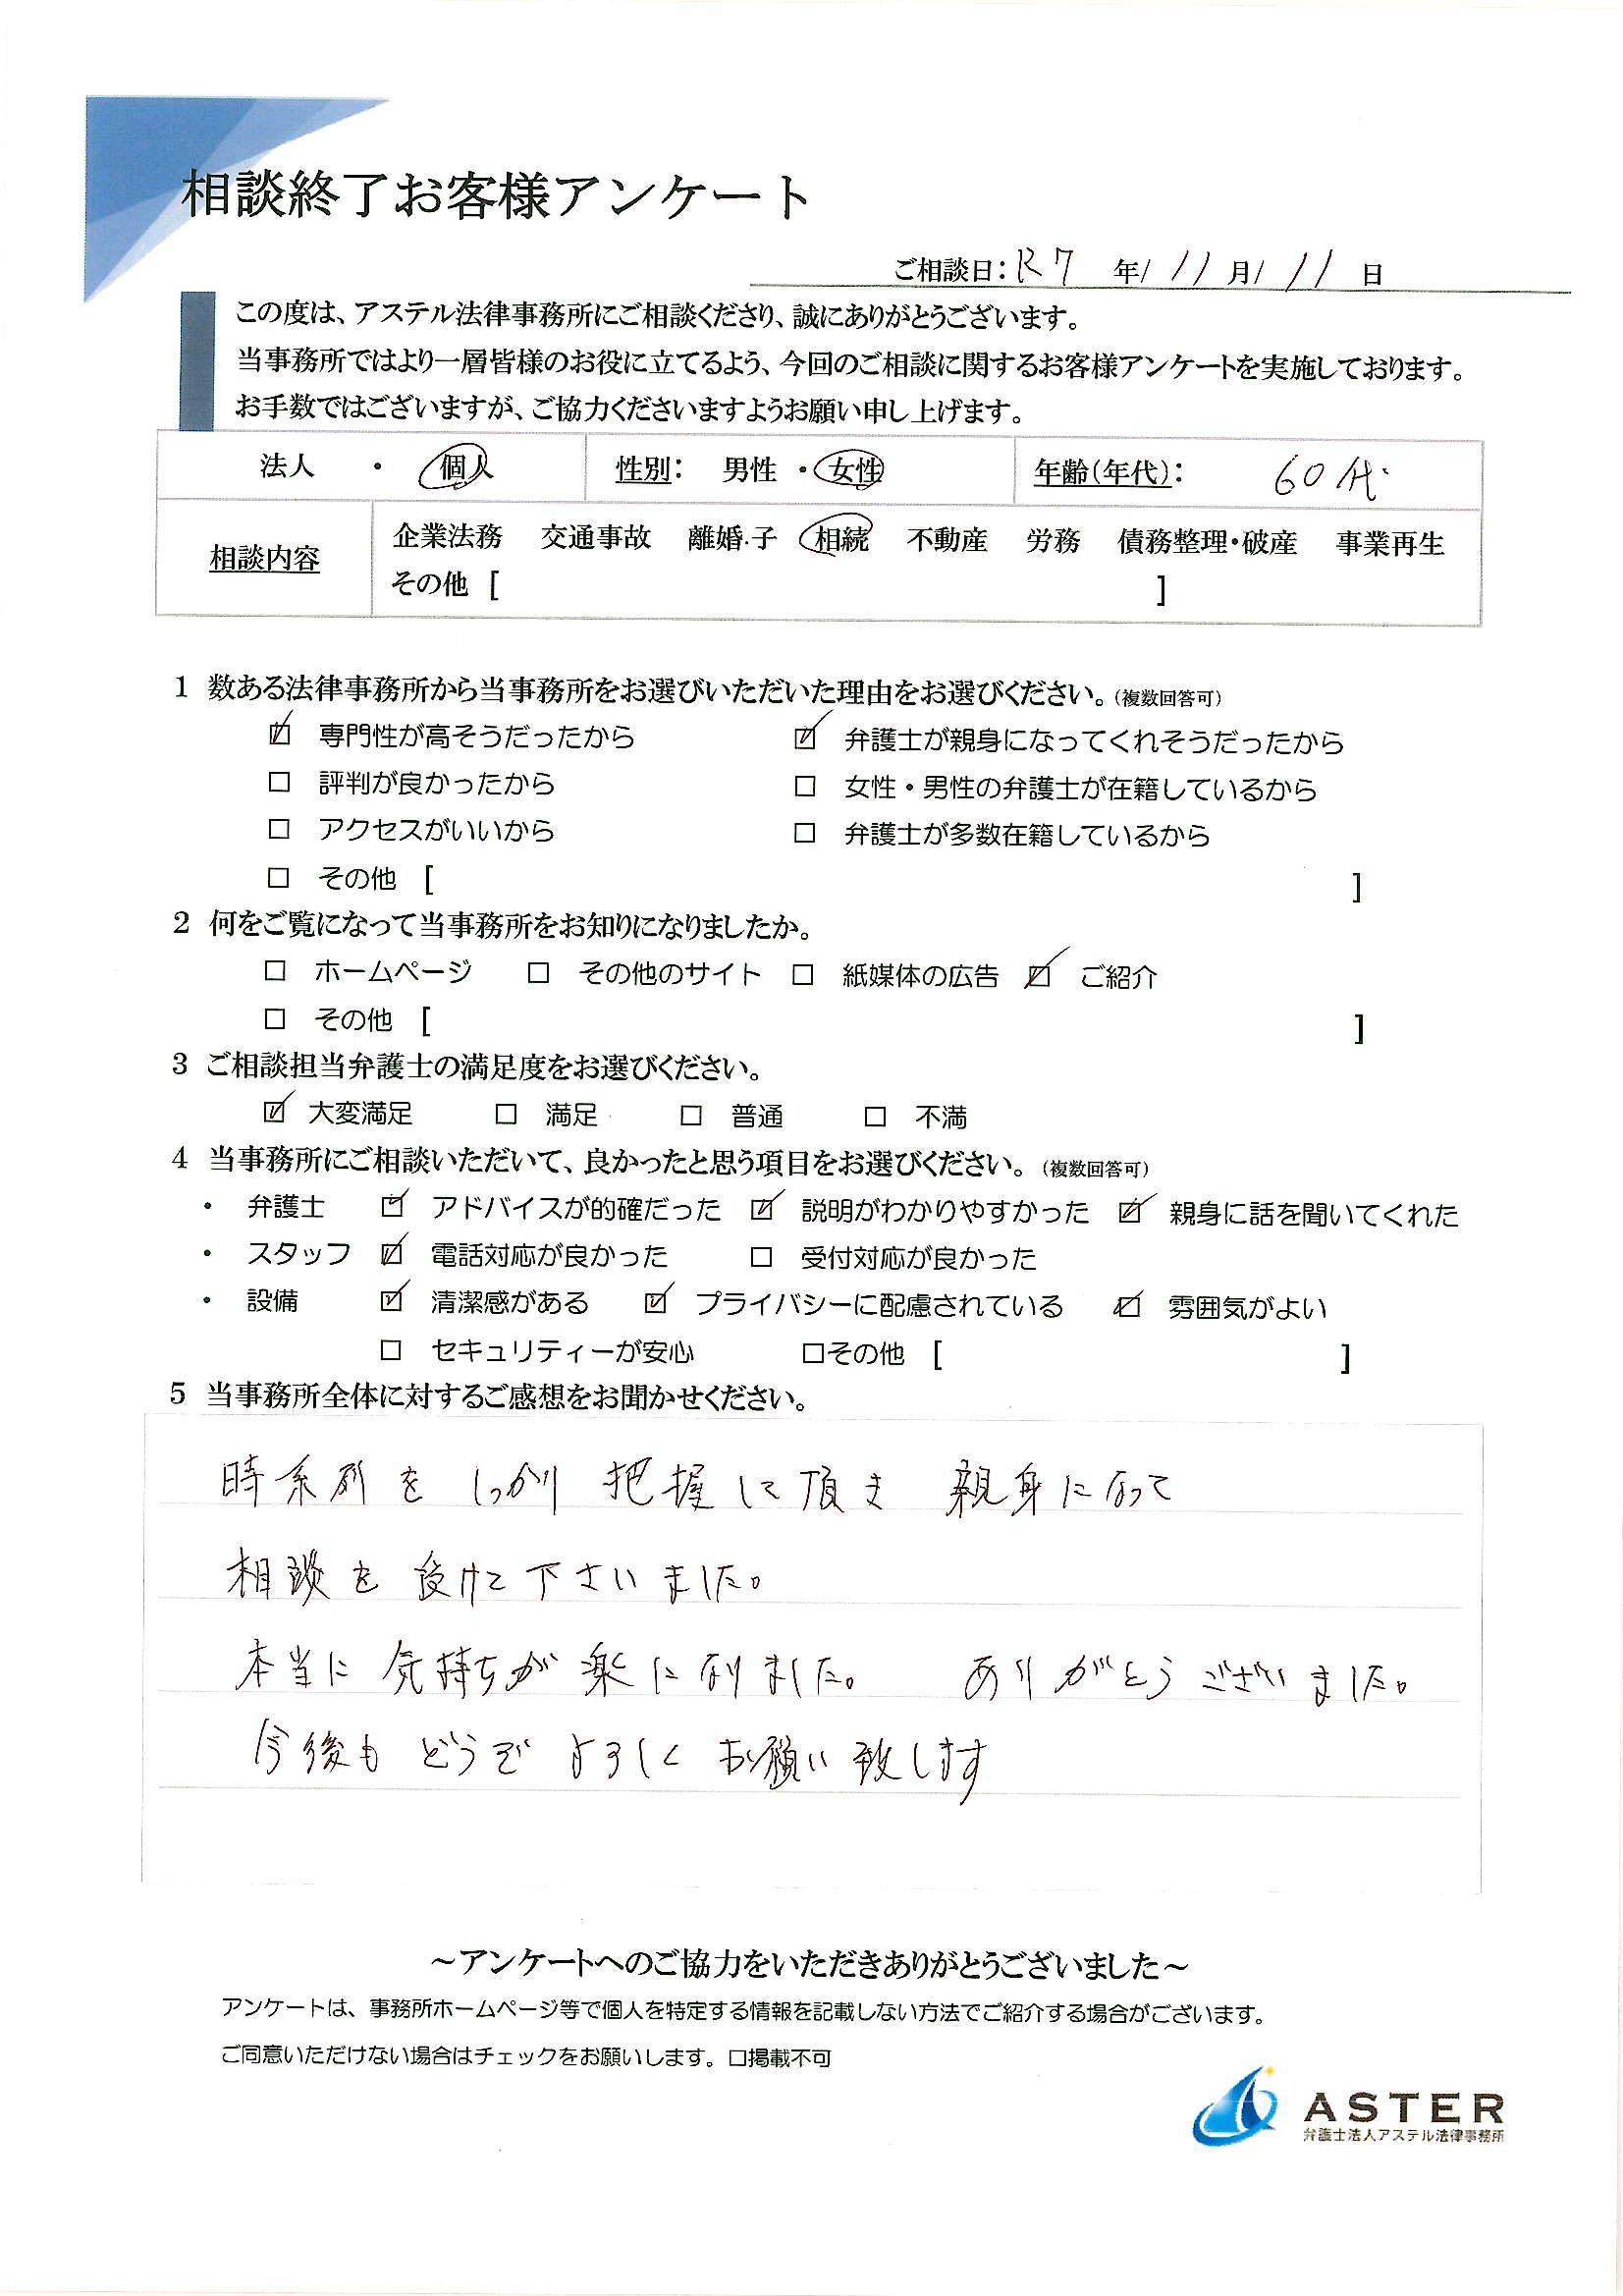 相談終了お客様アンケート
ご相談日：R7 年/ 11 月/ 11 日
この度は、アステル法律事務所にご相談くださり、誠にありがとうございます。
当事務所ではより一層皆様のお役に立てるよう、今回のご相談に関するお客様アンケートを実施しております。
お手数ではございますが、ご協力くださいますようお願い申し上げます。
法人 ・ 個人 性別： 男性 ・ 女性 年齢（年代）： 60代
相談内容 企業法務 交通事故 離婚・子 相続 不動産 労務 債務整理・破産 事業再生
その他 [ ]
1 数ある法律事務所から当事務所をお選びいただいた理由をお選びください。（複数回答可）
☑ 専門性が高そうだったから ☑ 弁護士が親身になってくれそうだったから
□ 評判が良かったから □ 女性・男性の弁護士が在籍しているから
□ アクセスがいいから □ 弁護士が多数在籍しているから
□ その他 [ ]
2 何をご覧になって当事務所をお知りになりましたか。
□ ホームページ □ その他のサイト □ 紙媒体の広告 ☑ ご紹介
□ その他 [ ]
3 ご相談担当弁護士の満足度をお選びください。
☑ 大変満足 □ 満足 □ 普通 □ 不満
4 当事務所にご相談いただいて、良かったと思う項目をお選びください。（複数回答可）
・ 弁護士 ☑ アドバイスが的確だった ☑ 説明がわかりやすかった ☑ 親身に話を聞いてくれた
・ スタッフ ☑ 電話対応が良かった □ 受付対応が良かった
・ 設備 ☑ 清潔感がある ☑ プライバシーに配慮されている ☑ 雰囲気がよい
□ セキュリティーが安心 □その他 [ ]
5 当事務所全体に対するご感想をお聞かせください。
時系列を しっかり 把握して頂き 親身になって
相談を 受けて下さいました。
本当に 気持ちが 楽になりました。 ありがとうございました。
今後も どうぞ よろしく お願い致します
～アンケートへのご協力をいただきありがとうございました～
アンケートは、事務所ホームページ等で個人を特定する情報を記載しない方法でご紹介する場合がございます。
ご同意いただけない場合はチェックをお願いします。□掲載不可
ASTER
弁護士法人アステル法律事務所